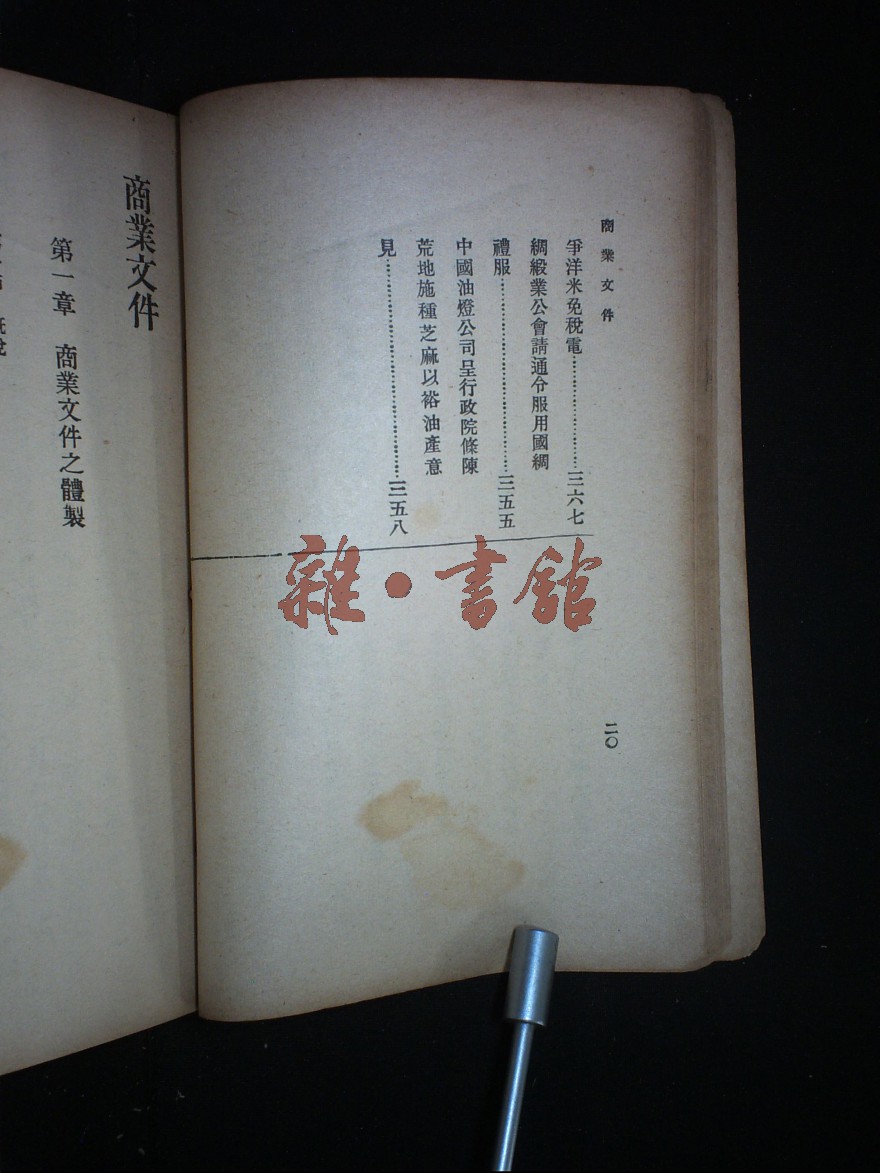 商業文件
爭洋米免稅電……………………三六七
綢緞業公會請通令服用國綢
禮服……………………………三五五
中國油燈公司呈行政院條陳
荒地施種芝麻以裕油產意
見…………………………………三五八
二〇
商業文件
第一章　商業文件之體製
雜·書館